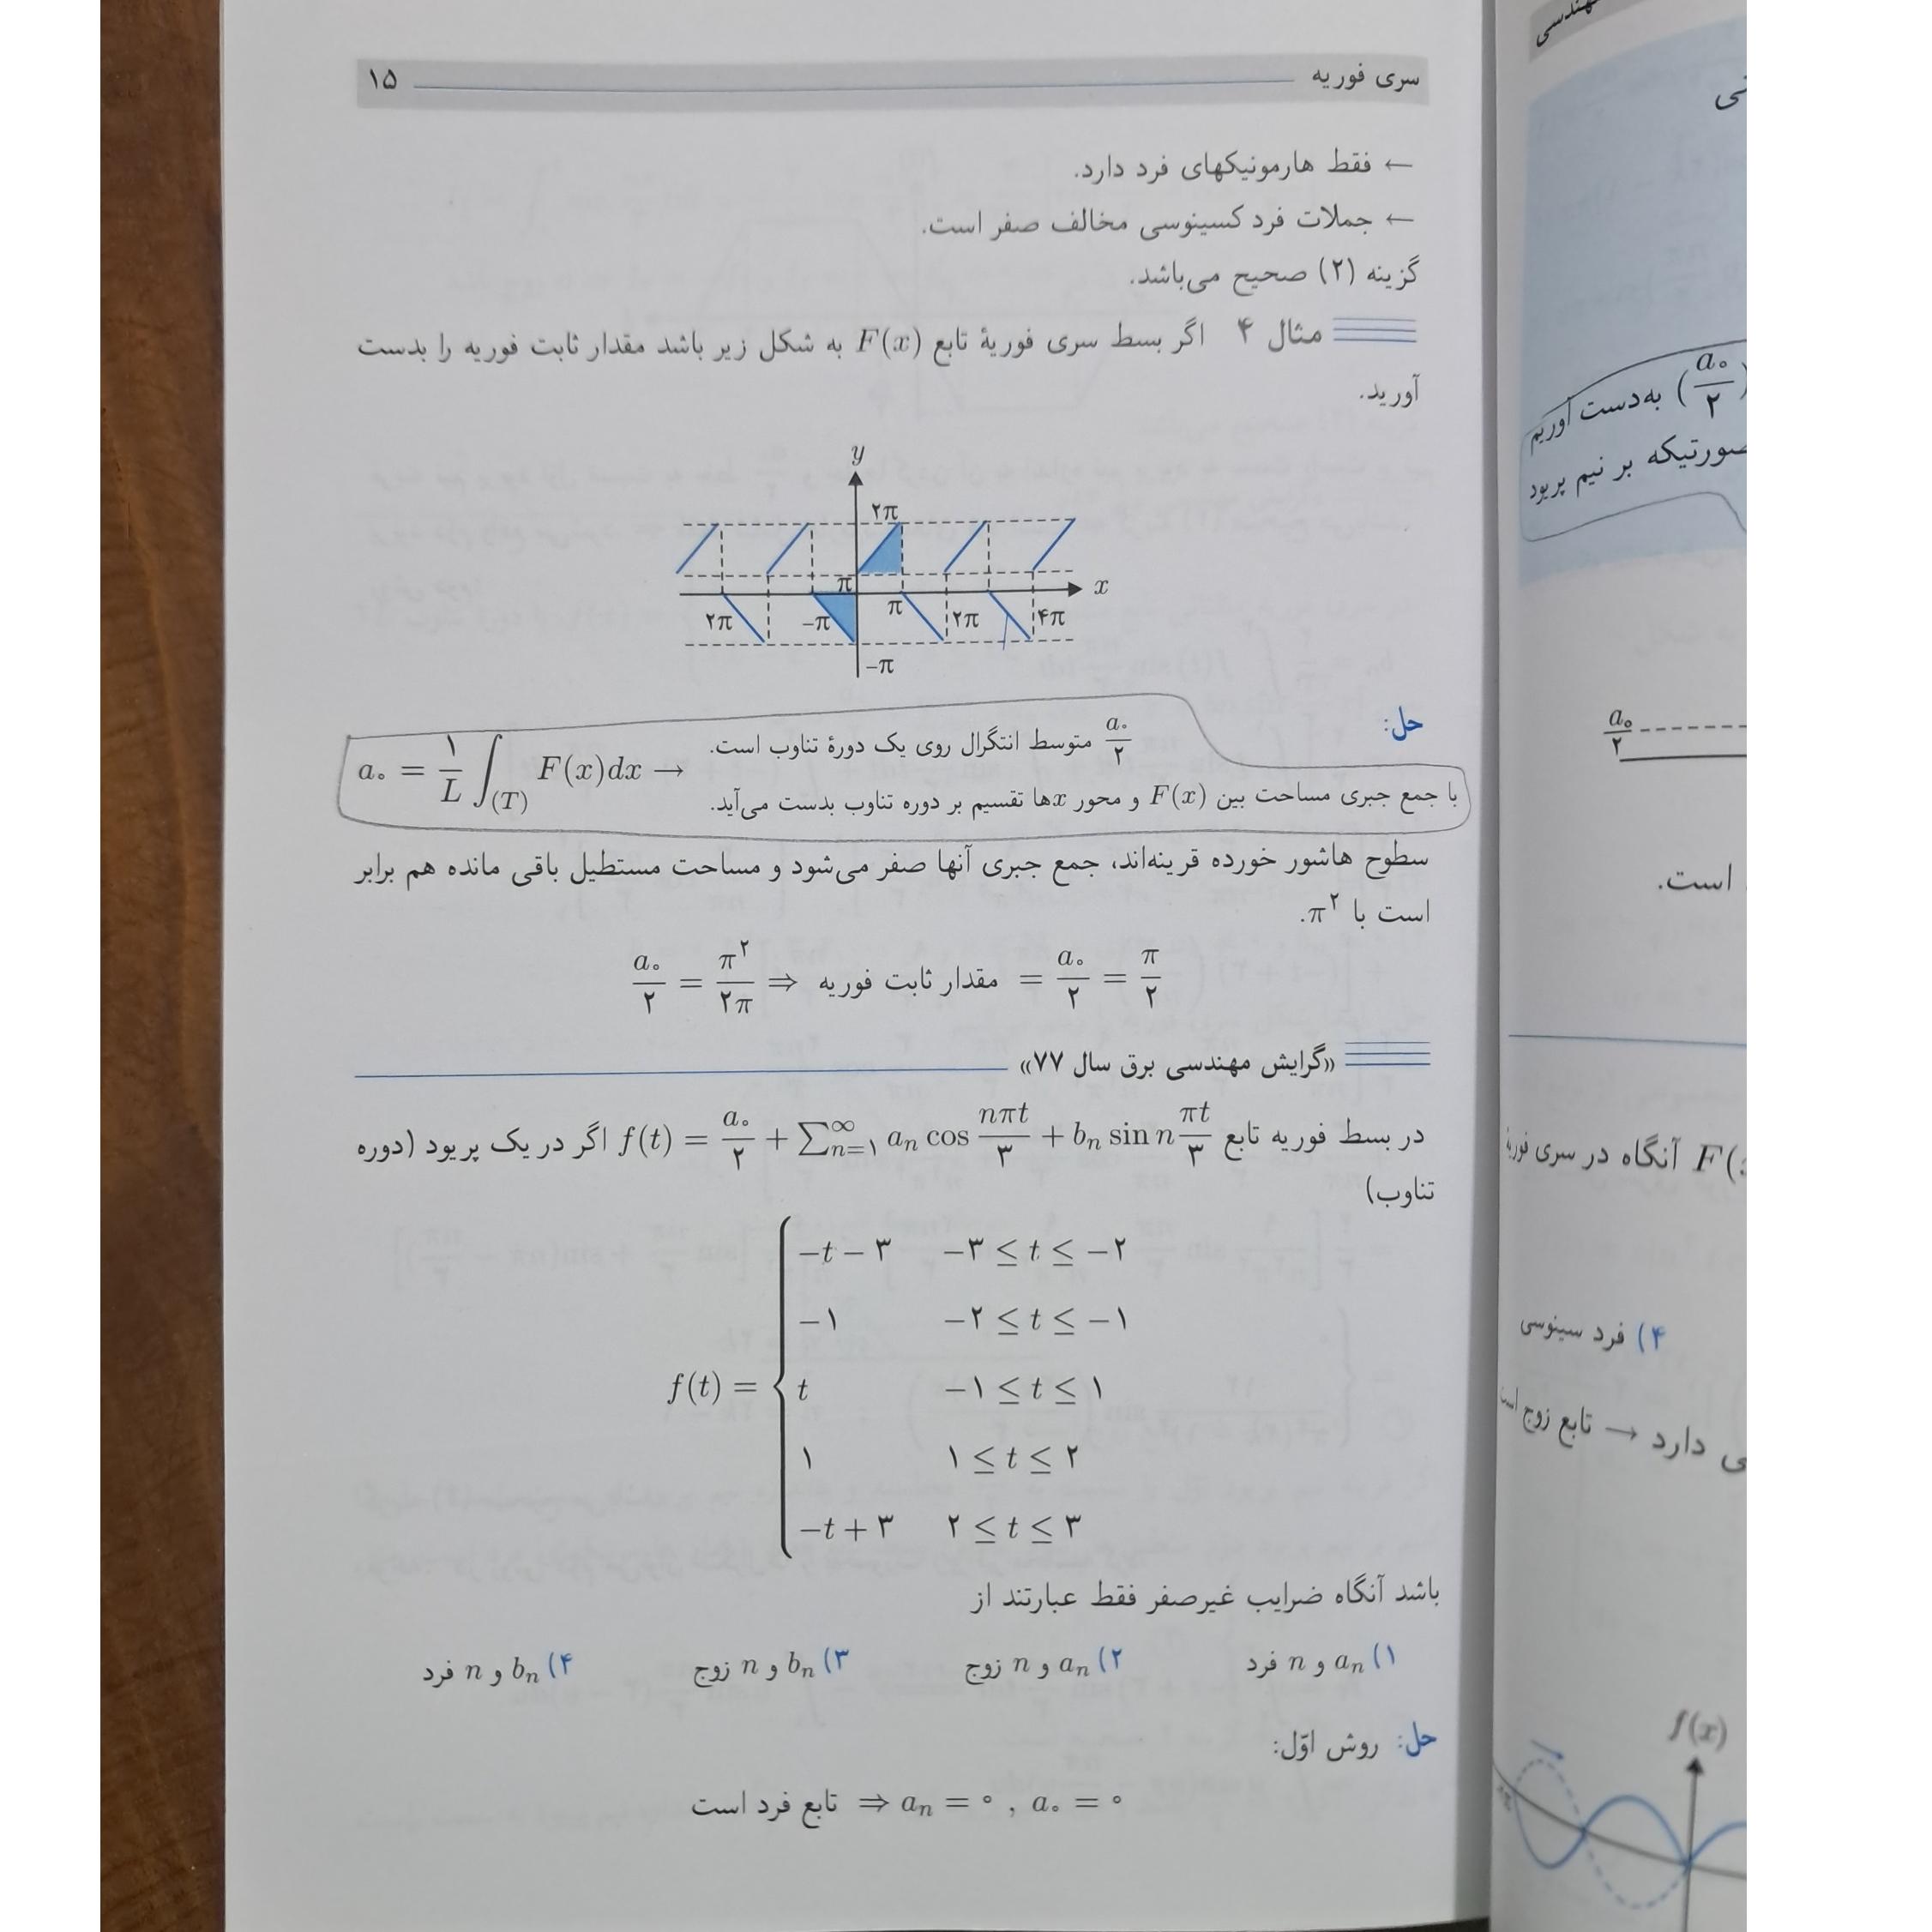 سری فوریه ۱۵
← فقط هارمونیکهای فرد دارد.
← جملات فرد کسینوسی مخالف صفر است.
گزینه (۲) صحیح می‌باشد.
مثال ۴ اگر بسط سری فوریهٔ تابع F(x) به شکل زیر باشد مقدار ثابت فوریه را بدست
آورید.
y
۲π
π
x
۲π −π π ۲π ۴π
−π
حل:
a₀/۲ متوسط انتگرال روی یک دورهٔ تناوب است.
a₀ = ۱/L ∫(T) F(x)dx →
با جمع جبری مساحت بین F(x) و محور xها تقسیم بر دوره تناوب بدست می‌آید.
سطوح هاشور خورده قرینه‌اند، جمع جبری آنها صفر می‌شود و مساحت مستطیل باقی مانده هم برابر
است با π².
a₀/۲ = π²/۲π ⇒ مقدار ثابت فوریه = a₀/۲ = π/۲
«گرایش مهندسی برق سال ۷۷»
در بسط فوریه تابع f(t) = a₀/۲ + ∑_{n=۱}^{∞} aₙ cos nπt/۳ + bₙ sin n πt/۳ اگر در یک پریود (دوره
تناوب)
f(t) = {
−t − ۳ −۳ ≤ t ≤ −۲
−۱ −۲ ≤ t ≤ −۱
t −۱ ≤ t ≤ ۱
۱ ۱ ≤ t ≤ ۲
−t + ۳ ۲ ≤ t ≤ ۳
باشد آنگاه ضرایب غیرصفر فقط عبارتند از
۱) aₙ و n فرد ۲) aₙ و n زوج ۳) bₙ و n زوج ۴) bₙ و n فرد
حل: روش اوّل:
تابع فرد است ⇒ aₙ = ۰ , a₀ = ۰
(a₀/۲) به‌دست آوریم
صورتیکه بر نیم پریود
a₀/۲
است.
F( آنگاه در سری فوریهٔ
۴) فرد سینوسی
دارد → تابع زوج است
f(x)